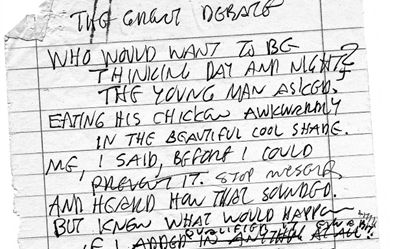 THE GREAT DEBATE
WHO WOULD WANT TO BE
THINKING DAY AND NIGHT?
THE YOUNG MAN ASKED.
EATING HIS CHICKEN AWKWARDLY
IN THE BEAUTIFUL COOL SHADE.
ME, I SAID, BEFORE I COULD
PREVENT IT. STOP MYSELF
AND HEARD HOW THAT SOUNDED.
BUT KNEW WHAT WOULD HAPPEN
IF I ADDED IN